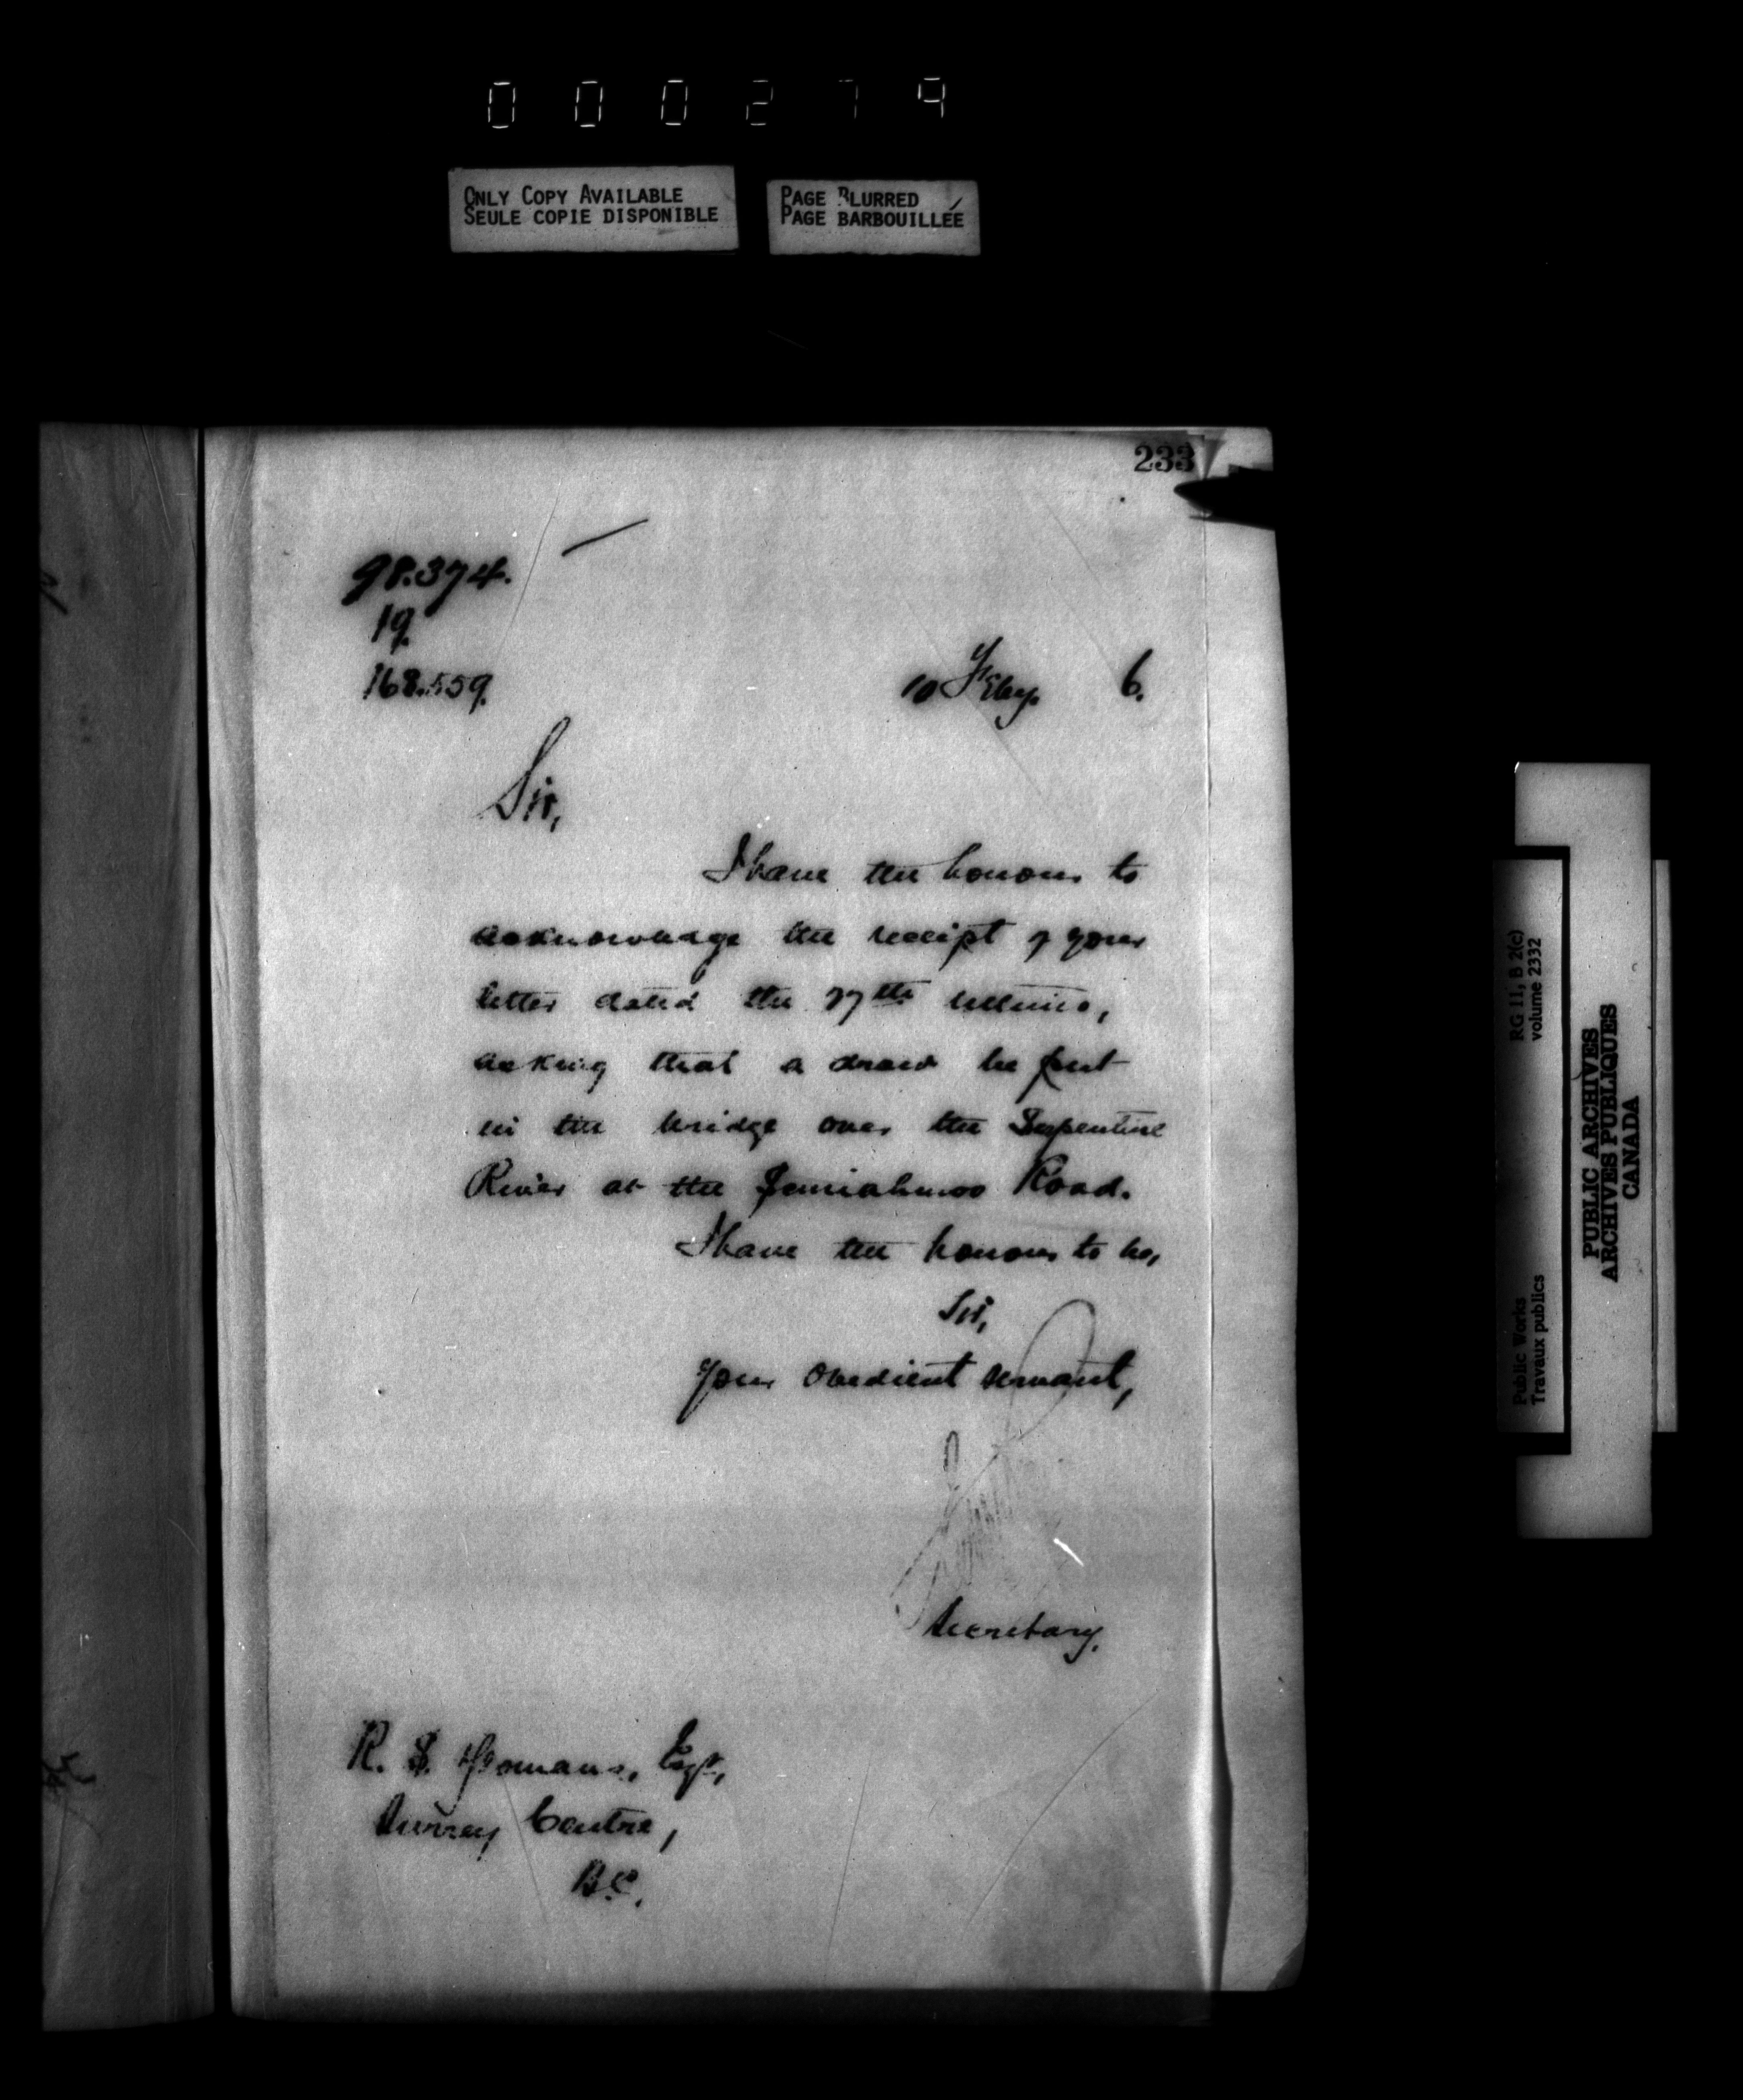 000279
ONLY COPY AVAILABLE
SEULE COPIE DISPONIBLE
PAGE BLURRED
PAGE BARBOUILLÉE
233
98.374.
19.
168.559.
10 Feby. 6.
Sir,
I have the honour to
acknowledge the receipt of your
letter dated the 27th ultimo,
asking that a draw be put
in the bridge over the Serpentine
River at the Semiahmoo Road.
I have the honour to be,
Sir,
Your obedient servant,
Secretary.
R. S. Yeomans, Esqr.,
Surrey Centre,
B.C.
RG 11, B 2(c)
volume 2332
Public Works
Travaux publics
PUBLIC ARCHIVES
ARCHIVES PUBLIQUES
CANADA